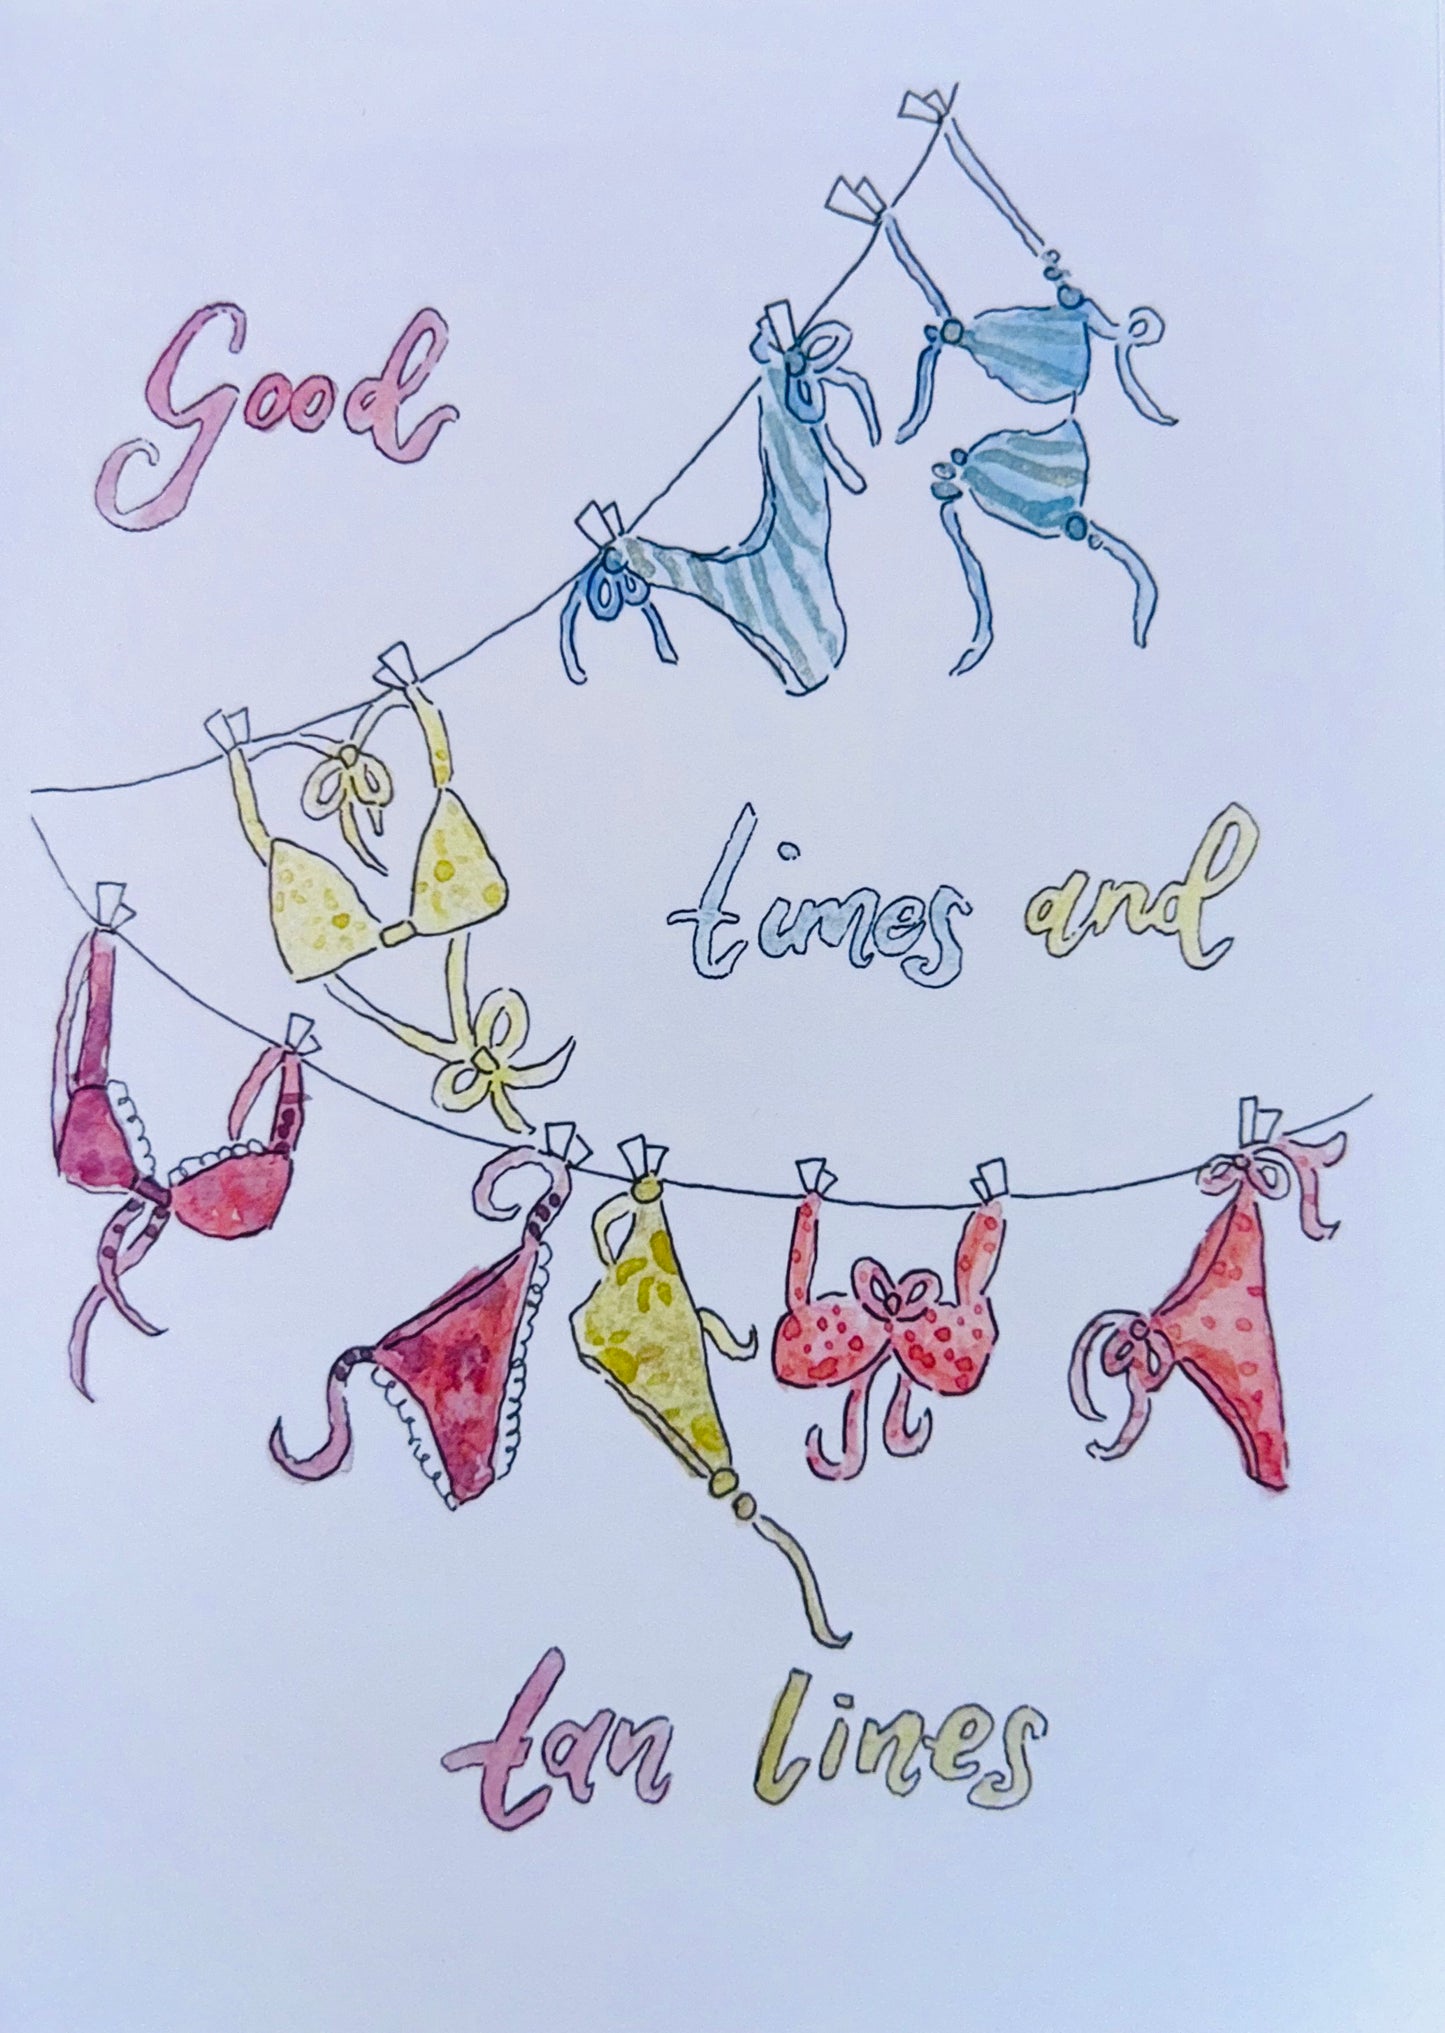 Good
times and
tan lines